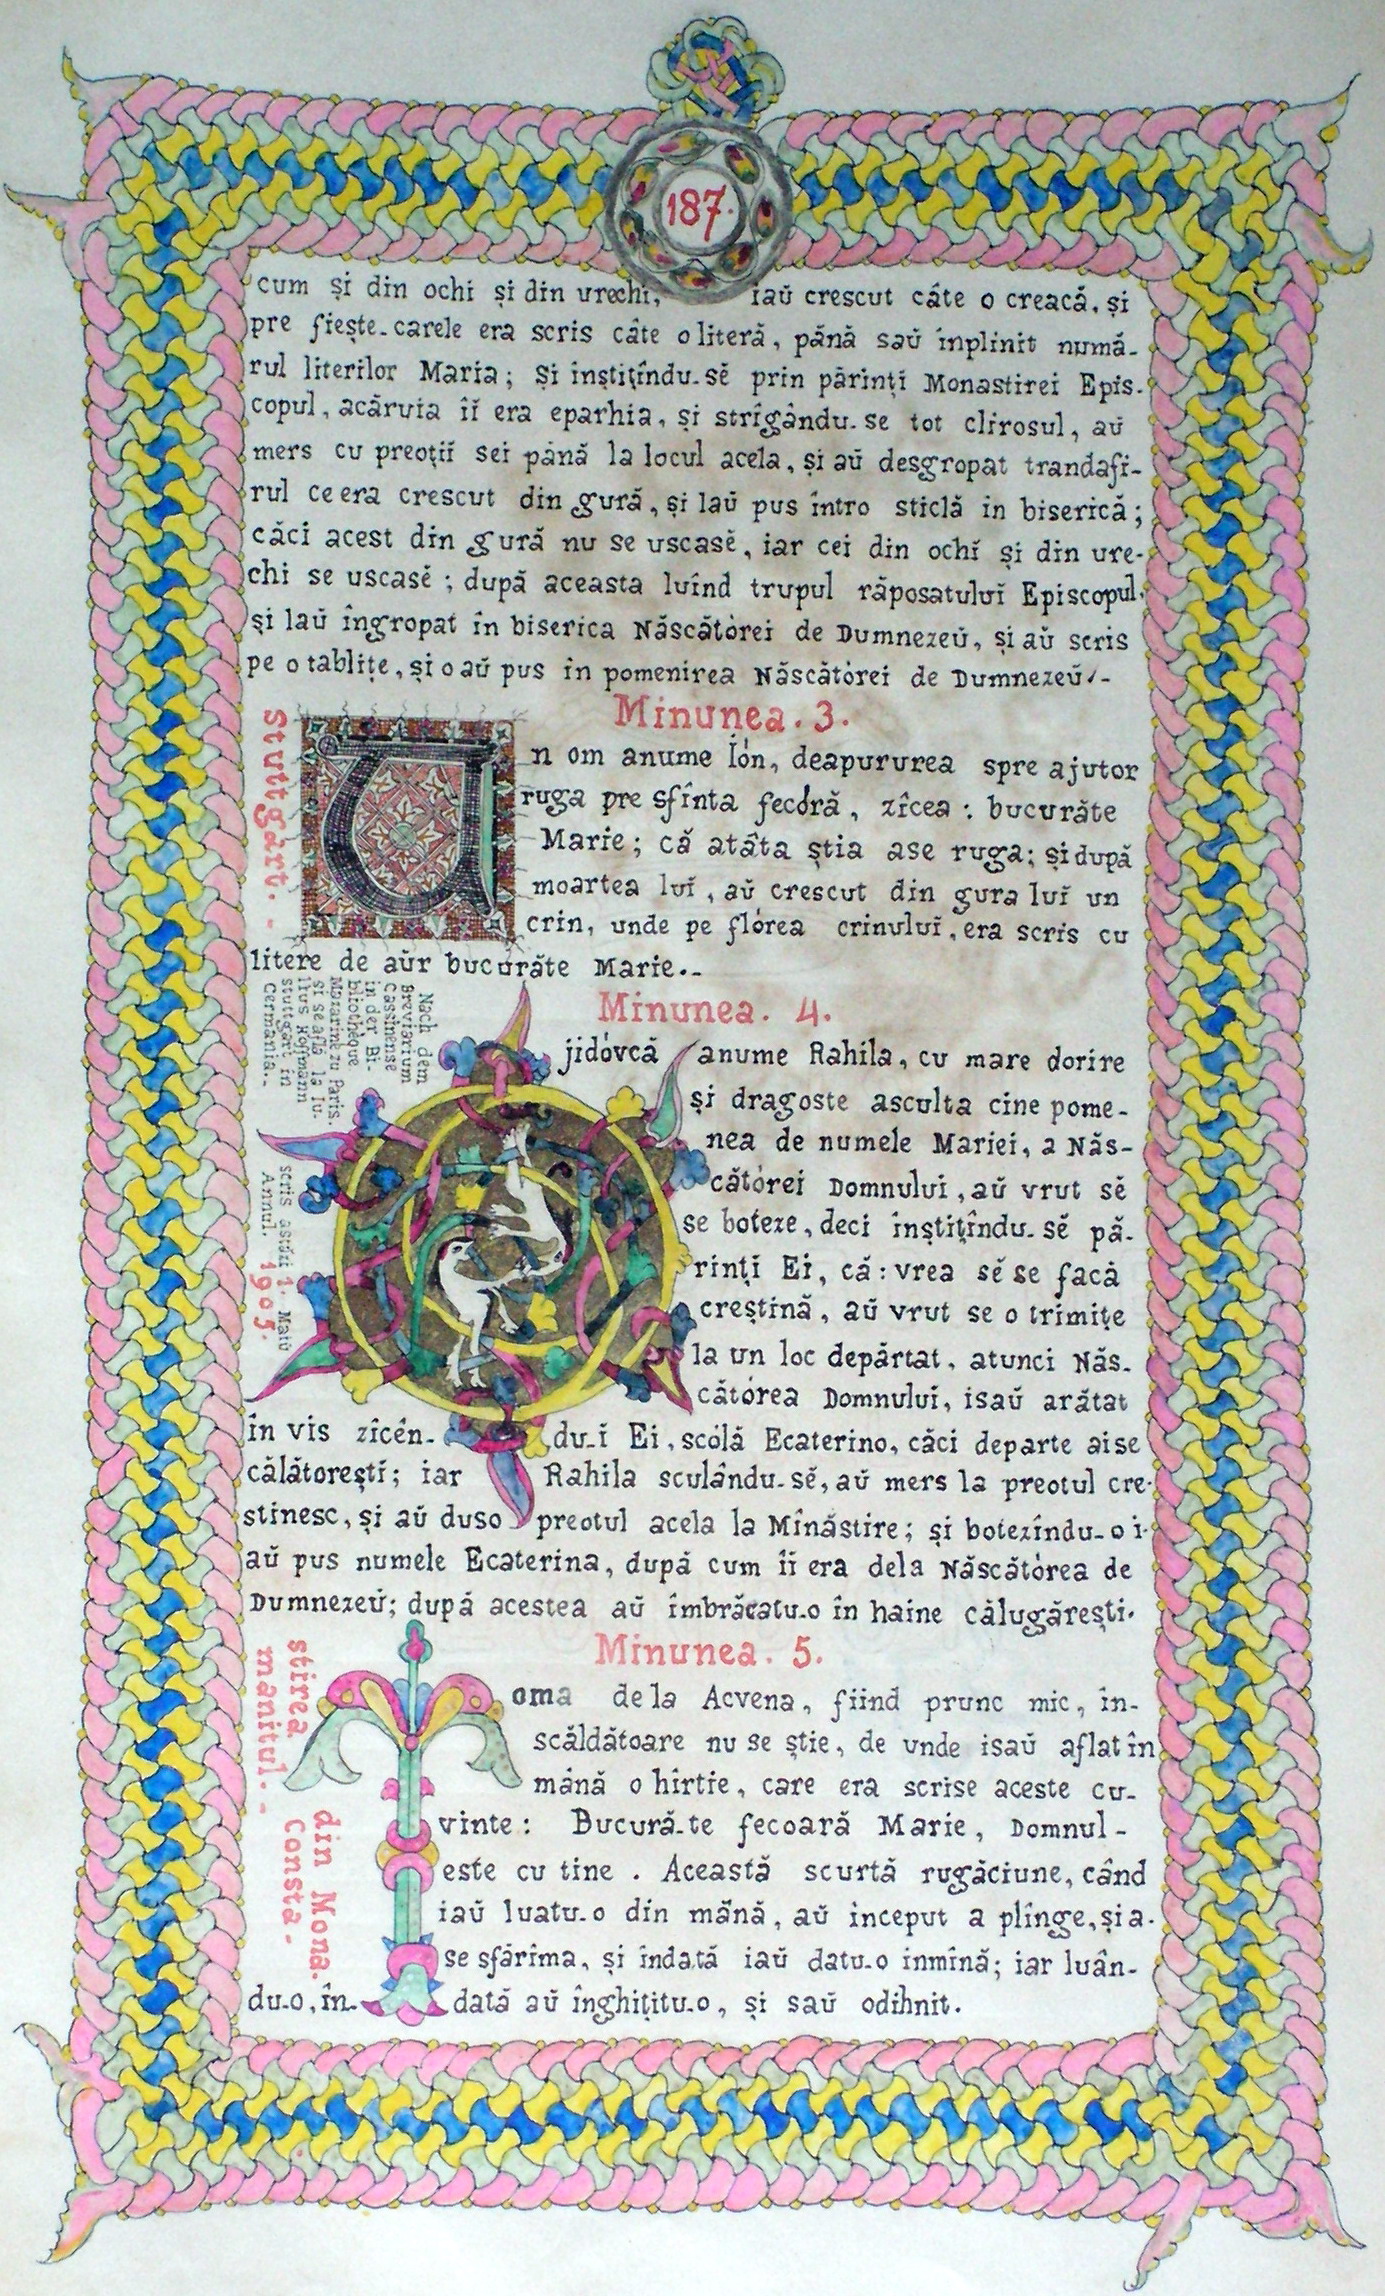 187.
cum și din ochi și din urechi, iaŭ crescut câte o creacă, și
pre fiește-carele era scris câte o literă, până saŭ inplinit numă-
rul literilor Maria; Și înștițîndu-sĕ prin părinți Monastirei Epis-
copul, acăruia îĭ era eparhia, și strîgându-se tot clirosul, aŭ
mers cu preoțiĭ sei până la locul acela, și aŭ desgropat trandafi-
rul ce era crescut din gură, și laŭ pus întro sticlă in biserică;
căci acest din gură nu se uscasĕ, iar cei din ochĭ și din ure-
chi se uscasĕ; după aceasta luînd trupul răposatuluĭ Episcopul,
și laŭ îngropat în biserica Născătórei de Dumnezeŭ, și aŭ scris
pe o tablițe, și o aŭ pus in pomenirea Născătórei de Dumnezeŭ.-
Minunea. 3.
Un om anume Ión, deapururea spre ajutor
ruga pre sfînta fecóră, zîcea: bucurăte
Marie; că atâta știa ase ruga; și după
moartea luĭ, aŭ crescut din gura luĭ un
crin, unde pe flórea crinuluĭ, era scris cu
litere de aŭr bucurăte Marie..
Stuttgart.-
Minunea. 4.
O jidóvcă anume Rahila, cu mare dorire
și dragoste asculta cine pome-
nea de numele Mariei, a Năs-
cătórei Domnuluĭ, aŭ vrut sĕ
se boteze, deci înștițîndu-sĕ pă-
rințĭ Ei, că: vrea sĕ se facă
creștină, aŭ vrut se o trimițe
la un loc depărtat, atunci Năs-
cătórea Domnuluĭ, isaŭ arătat
în vis zîcên- du-ĭ Ei, scólă Ecaterino, căci departe ai se
călătoreștĭ; iar Rahila sculându-sĕ, aŭ mers la preotul cre-
stinesc, și aŭ duso preotul acela la Mînăstire; și botezîndu-o i-
aŭ pus numele Ecaterina, după cum îĭ era dela Născătórea de
Dumnezeŭ; după acestea aŭ îmbrăcatu-o în haine călugărești.
Nach dem
Breviarium
Cassinense
in der Bi-
bliotheque
Mazarine zu Paris.
și se află la Iu-
lius Hoffmann
Stuttgart in
Cermania..
scris astăzi 1. Maiŭ
Annul. 1905.
Minunea. 5.
Toma dela Acvena, fiind prunc mic, în-
scăldătoare nu se știe, de unde isaŭ aflat în
mână o hîrtie, care era scrise aceste cu-
vinte: Bucură-te fecoară Marie, Domnul-
este cu tine. Această scurtă rugăciune, când
iaŭ luatu-o din mână, aŭ inceput a plînge, și a-
se sfărîma, și îndată iaŭ datu-o inmînă; iar luân-
du-o, în- dată aŭ înghițitu-o, și saŭ odihnit.
din Mona-
stirea. Consta-
manitul.-